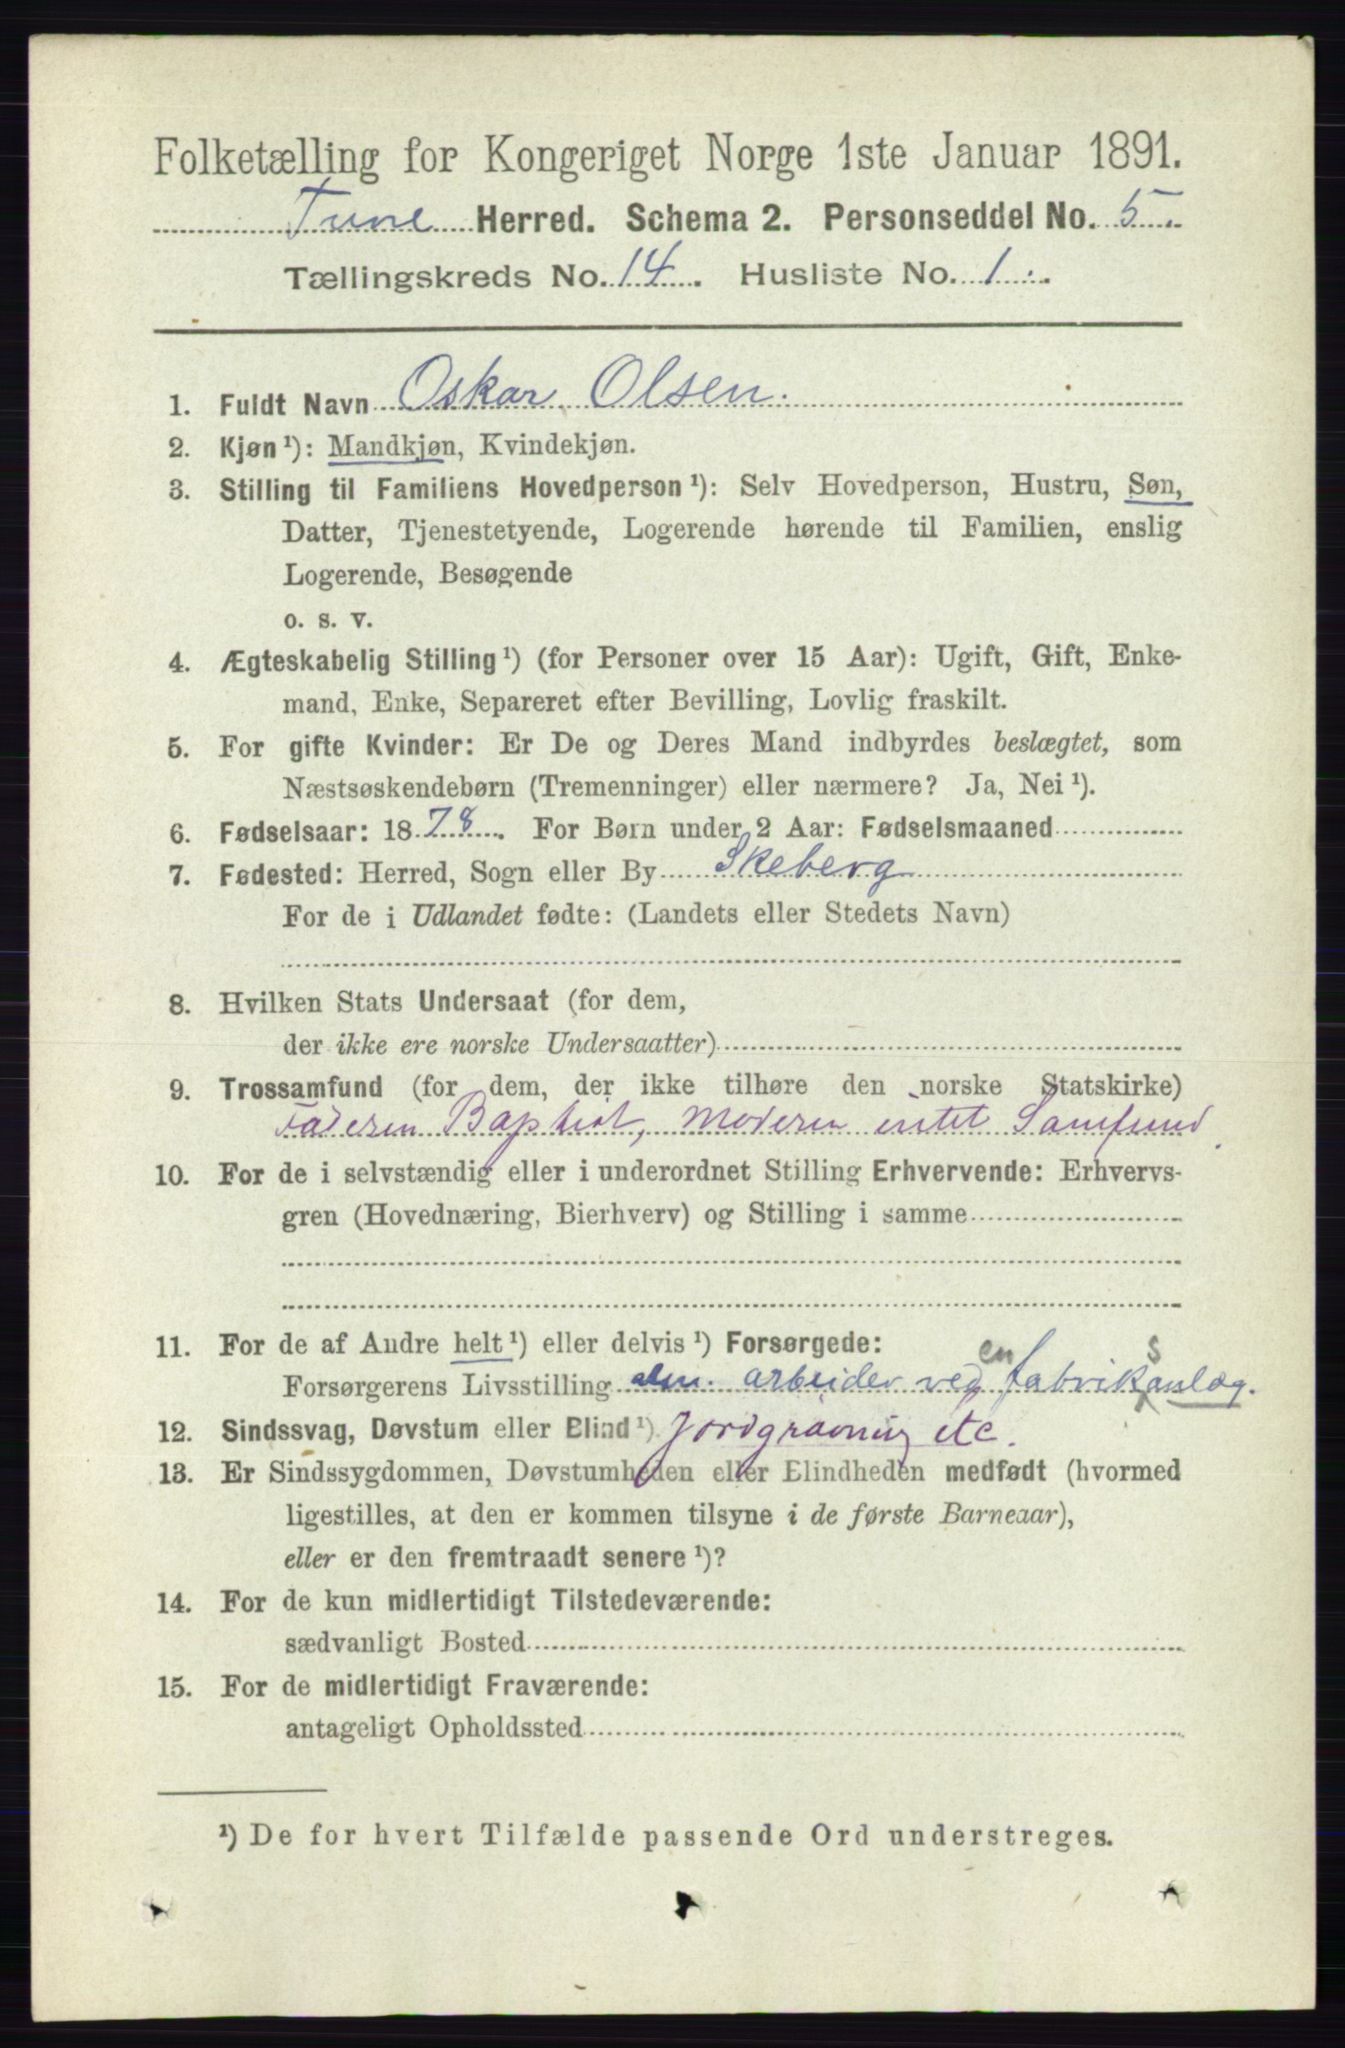 Folketælling for Kongeriget Norge 1ste Januar 1891.
Tune Herred. Schema 2. Personseddel No. 5.
Tællingskreds No. 14. Husliste No. 1.
1. Fuldt Navn Oskar Olsen.
2. Kjøn¹): Mandkjøn, Kvindekjøn.
3. Stilling til Familiens Hovedperson¹): Selv Hovedperson, Hustru, Søn,
Datter, Tjenestetyende, Logerende hørende til Familien, enslig
Logerende, Besøgende
o. s. v.
4. Ægteskabelig Stilling¹) (for Personer over 15 Aar): Ugift, Gift, Enke-
mand, Enke, Separeret efter Bevilling, Lovlig fraskilt.
5. For gifte Kvinder: Er De og Deres Mand indbyrdes beslægtet, som
Næstsøskendebørn (Tremenninger) eller nærmere? Ja, Nei¹).
6. Fødselsaar: 1878. For Børn under 2 Aar: Fødselsmaaned
7. Fødested: Herred, Sogn eller By Skeberg
For de i Udlandet fødte: (Landets eller Stedets Navn)
8. Hvilken Stats Undersaat (for dem,
der ikke ere norske Undersaatter)
9. Trossamfund (for dem, der ikke tilhøre den norske Statskirke)
Faderen Baptist, Moderen intet Samfund.
10. For de i selvstændig eller i underordnet Stilling Erhvervende: Erhvervs-
gren (Hovednæring, Bierhverv) og Stilling i samme
11. For de af Andre helt¹) eller delvis¹) Forsørgede:
Forsørgerens Livsstilling alm. arbeider ved en fabriksanlæg.
12. Sindssvag, Døvstum eller Blind¹) Jordgravning etc.
13. Er Sindssygdommen, Døvstumheden eller Blindheden medfødt (hvormed
ligestilles, at den er kommen tilsyne i de første Barneaar),
eller er den fremtraadt senere¹)?
14. For de kun midlertidigt Tilstedeværende:
sædvanligt Bosted
15. For de midlertidigt Fraværende:
antageligt Opholdssted
¹) De for hvert Tilfælde passende Ord understreges.